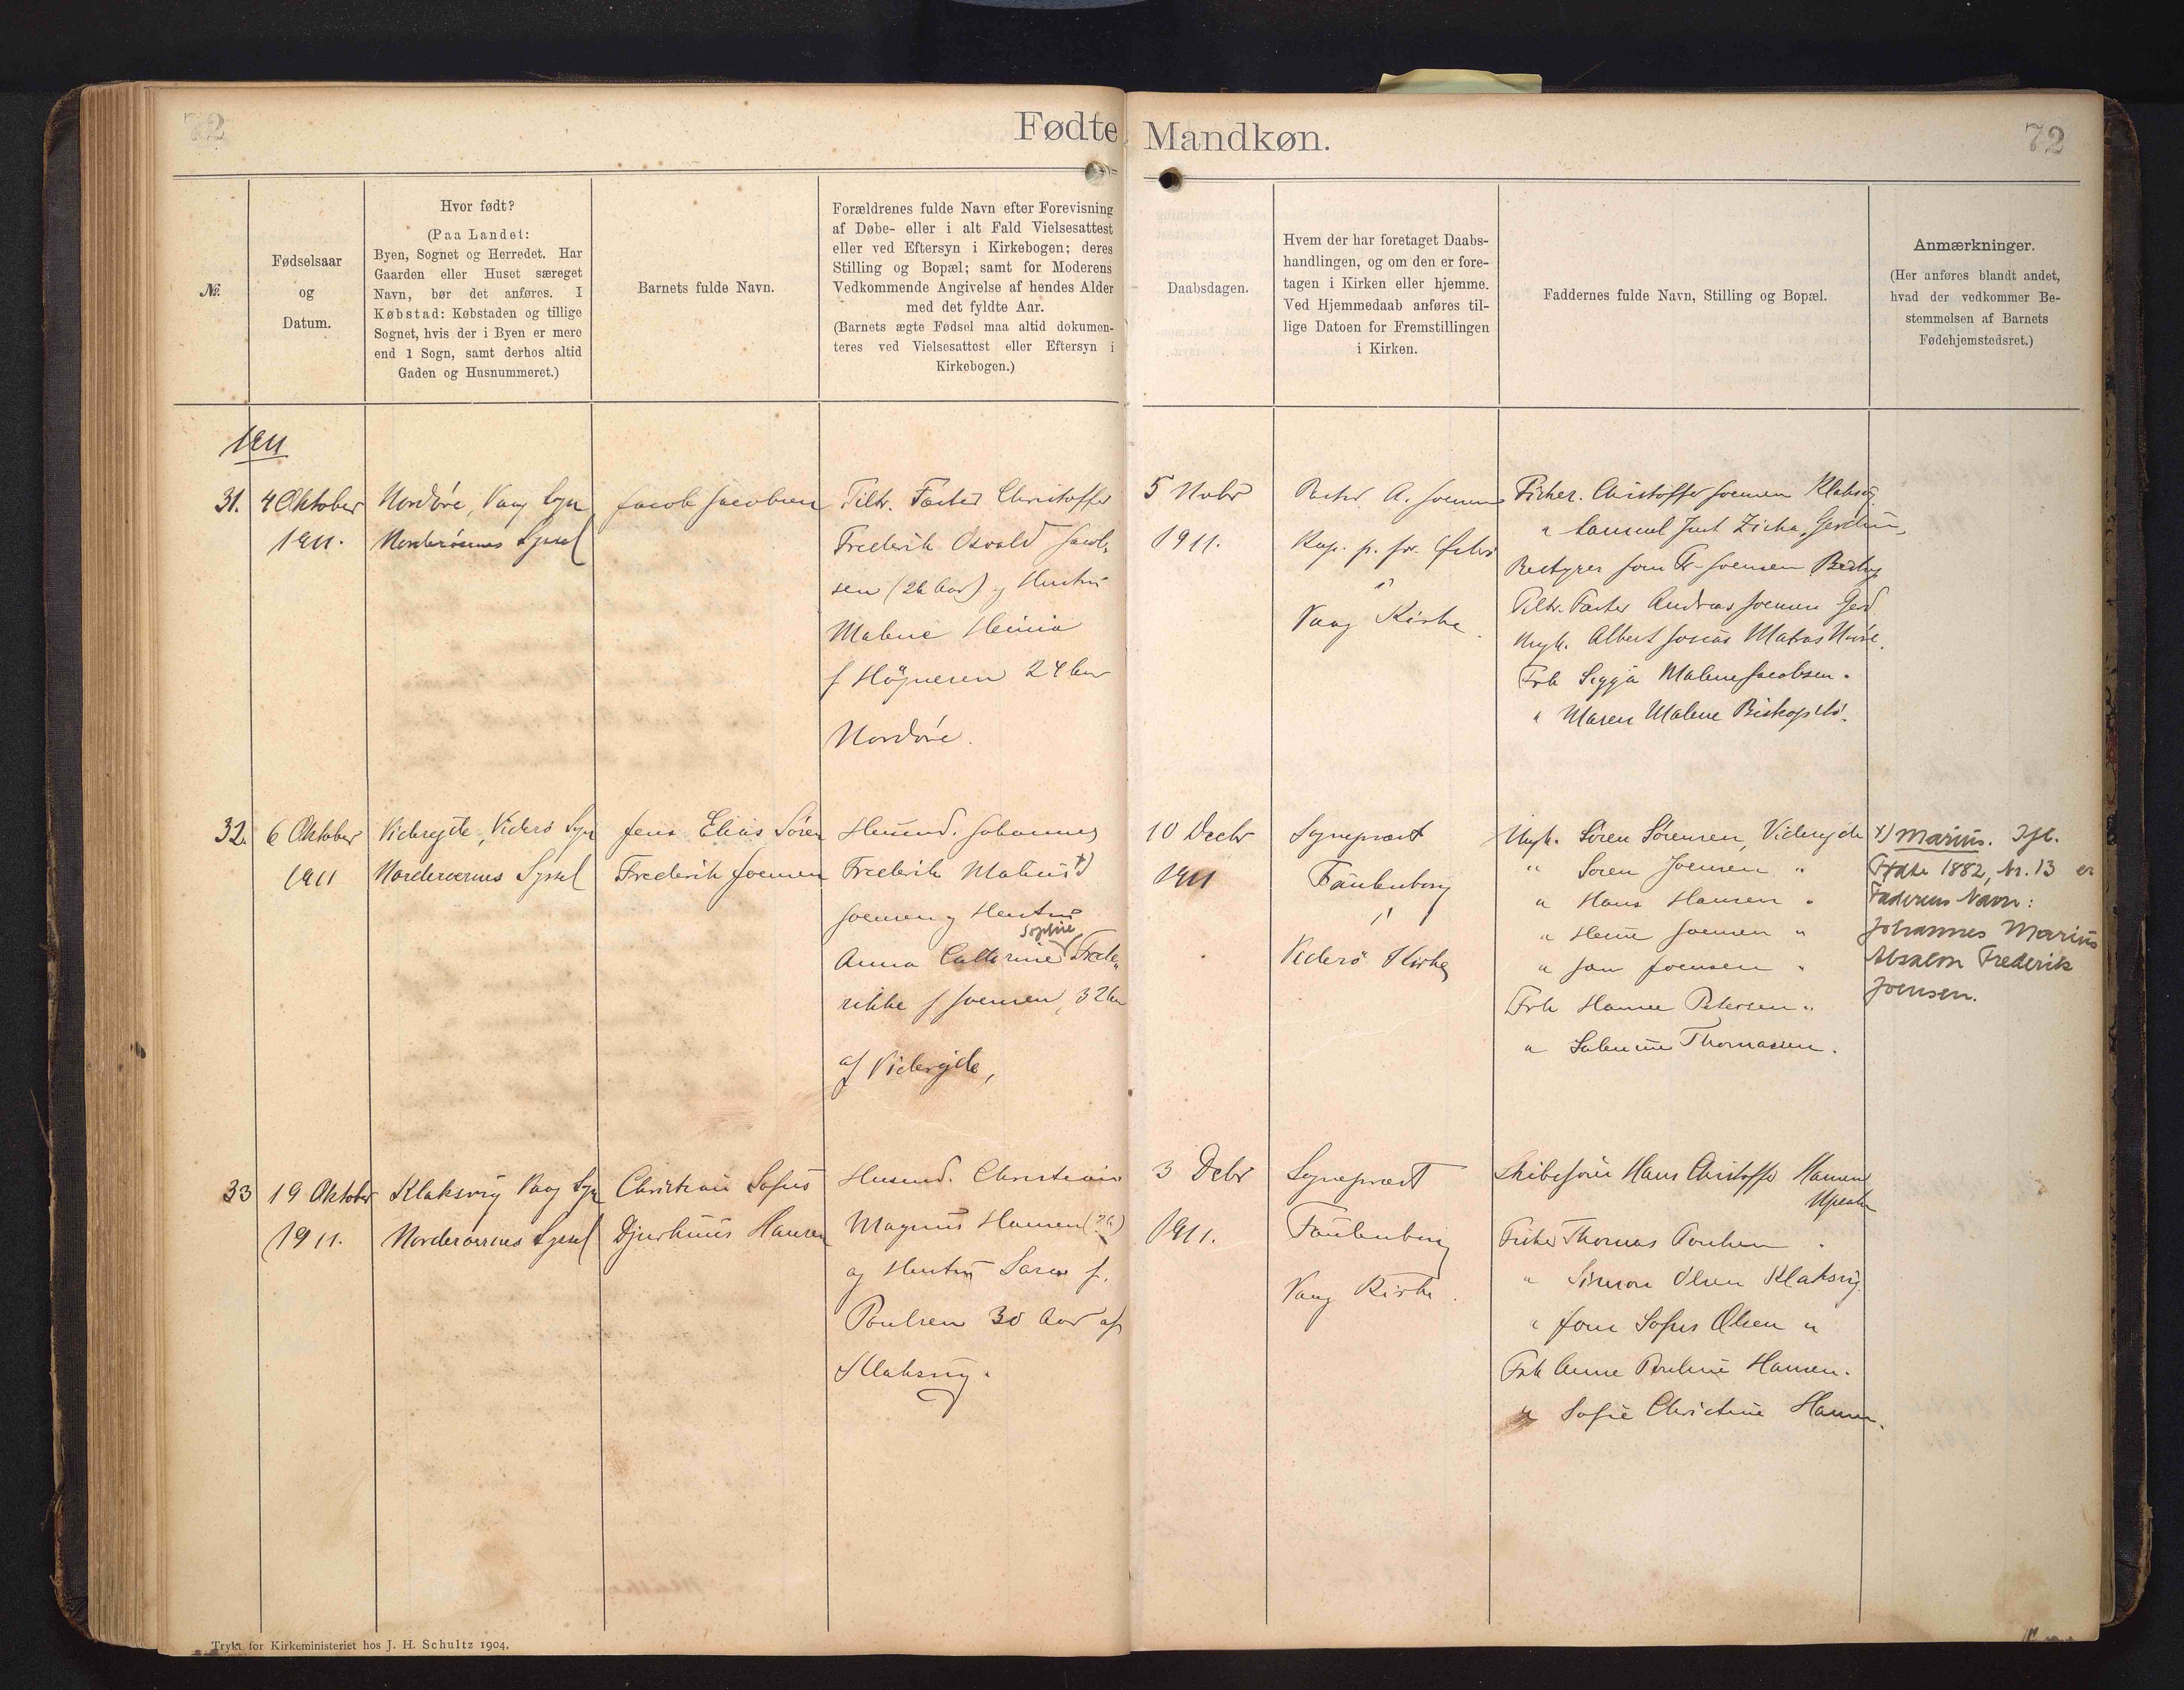 72
Fødte Mandkøn.
72
№.
Fødselsaar
og
Datum.
Hvor født?
(Paa Landet:
Byen, Sognet og Herredet. Har
Gaarden eller Huset særeget
Navn, bør det anføres. I
Købstad: Købstaden og tillige
Sognet, hvis der i Byen er mere
end 1 Sogn, samt derhos altid
Gaden og Husnummeret.)
Barnets fulde Navn.
Forældrenes fulde Navn efter Forevisning
af Døbe- eller i alt Fald Vielsesattest
eller ved Eftersyn i Kirkebogen; deres
Stilling og Bopæl; samt for Moderens
Vedkommende Angivelse af hendes Alder
med det fyldte Aar.
(Barnets ægte Fødsel maa altid dokumen-
teres ved Vielsesattest eller Eftersyn i
Kirkebogen.)
Daabsdagen.
Hvem der har foretaget Daabs-
handlingen, og om den er fore-
tagen i Kirken eller hjemme.
Ved Hjemmedaab anføres til-
lige Datoen for Fremstillingen
i Kirken.
Faddernes fulde Navn, Stilling og Bopæl.
Anmærkninger.
(Her anføres blandt andet,
hvad der vedkommer Be-
stemmelsen af Barnets
Fødehjemstedsret.)
1911
31.
4 Oktober
1911.
Nordöre, Vaag Sogn
Norderöernes Syssel
Jacob Jacobsen
Tiltr. Fæster Christoffer
Frederik Osvald Jacob-
sen (26 Aar) og Hustru
Malene
f Högnesen 24 Aar
Nordöre.
5 Novbr
1911.
A. Joensen
Kap. p. p. for
i
Vaag Kirke.
Fisker. Christoffer Joensen Klaksvig
" Samuel
Bestyrer Joen Fr. Joensen
Tiltr. Fæster Andreas Joensen
Ungk. Albert Josias Matras
Frk Sigga Malene Jacobsen.
" Maren Malene Biskopstö.
32.
6 Oktober
1911
Viderejde, Viderö Sogn
Norderöernes Syssel
Jens Elias Sören
Frederik Joensen
Husmd. Johannes
Frederik Matius x)
Joensen og Hustru
Sophie
Anna Cathrine Frede-
rikke f Joensen, 32 Aar
af Viderejde,
10 Decbr
1911
Sognepræst
Faulenborg
i
Viderö Kirke
Ungk. Sören Sörensen, Viderejde
" Sören Joensen "
" Hans Hansen "
" Joensen "
" Joen Joensen "
Frk Hanne Petersen "
" Thomassen.
x) Marius. Ifl.
Fødte 1882, Nr. 13 er
Faderens Navn:
Johannes Marius
Absalon Frederik
Joensen.
33
19 Oktober
1911.
Klaksvig Vaag Sogn
Norderöernes Syssel
Christian Sofus
Djurhuus Hansen
Husmd. Christian
Magnus Hansen
og Hustru Sara f.
Poulsen 30 Aar af
Klaksvig.
3 Decbr
1911.
Sognepræst
Faulenborg
Vaag Kirke.
Hans Christoffer Hansen
Fisker Thomas Poulsen "
" Simon Olsen Klaksvig
" Joen Sofus Olsen "
Frk Anne Pauline Hansen.
" Sofie Christine Hansen.
Trykt for Kirkeministeriet hos J. H. Schultz 1904.